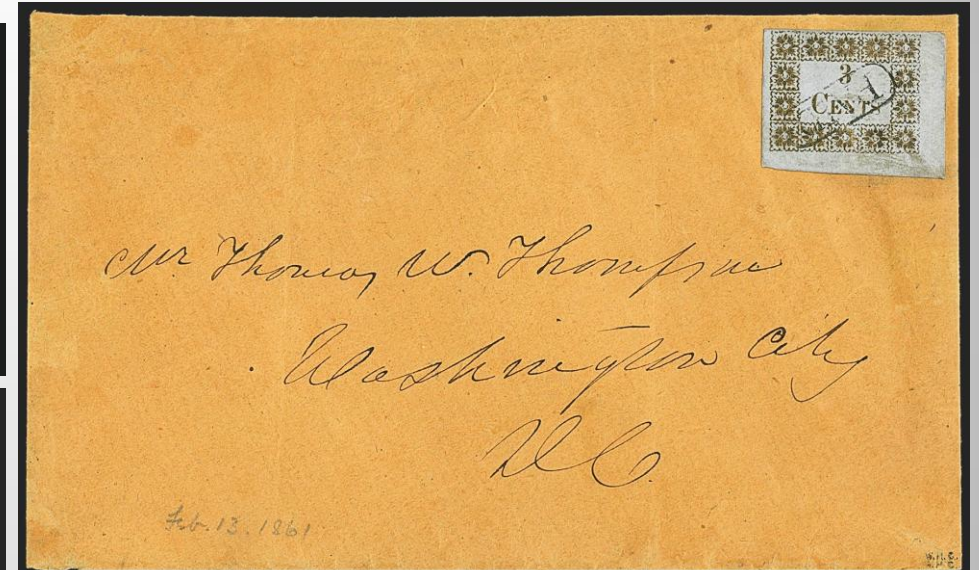 3
CENTS
PAID
Mr Thomas W. Thompson
Washington City
D C
Feb. 13. 1861
W.H.C.